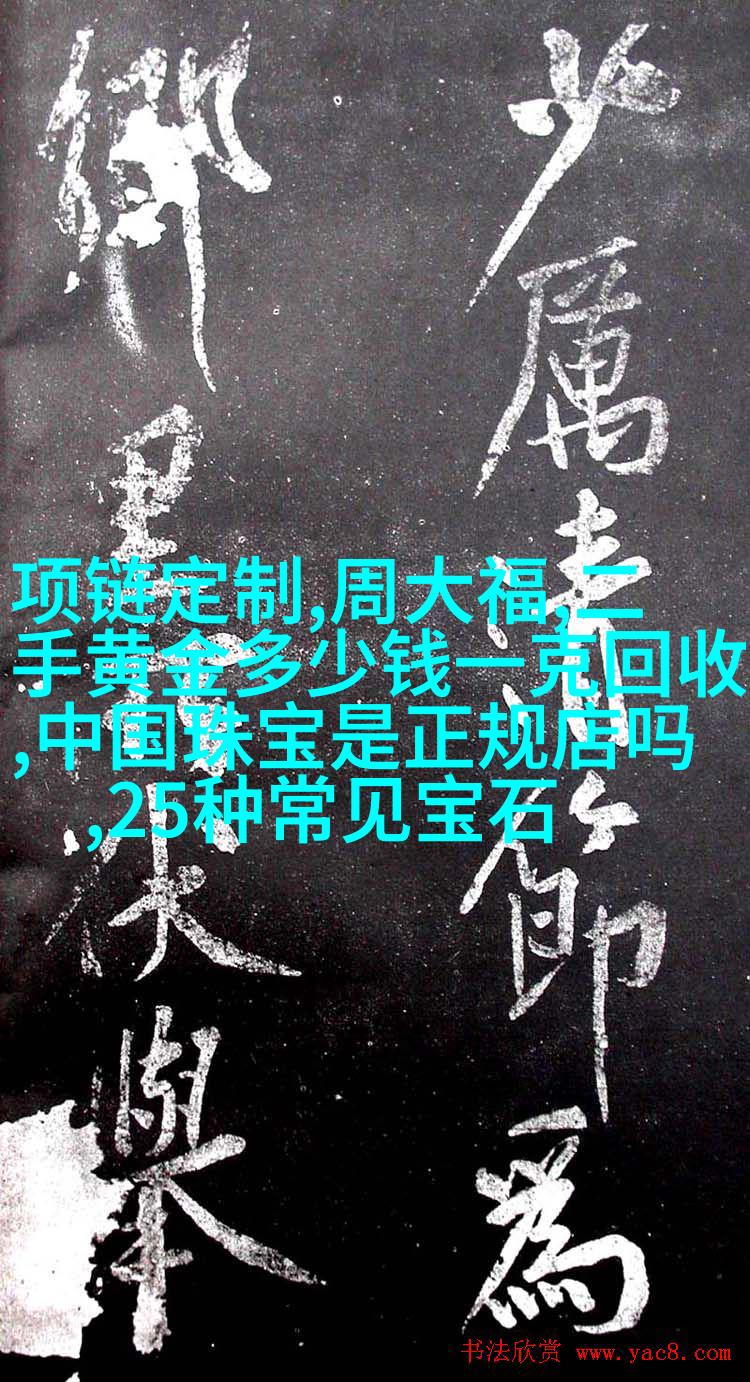 少厲清節為
鄉里伏舉
项链定制,周大福,二
手黄金多少钱一克回收
,中国珠宝是正规店吗
,25种常见宝石
书法欣赏 www.yac8.com